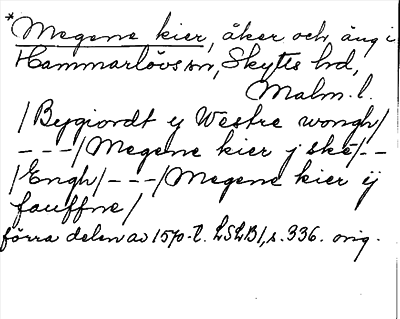 * Megene kier, åker och äng i
Hammarlövs sn, Skytts hd,
Malm. l.
/Bygiordt ij Westre wongh/
---/Megene kier j ske/--
/Engh/---/Megene kier ij
fauffne/
förra delen av 1570-t. LSLB1, s. 336. orig.